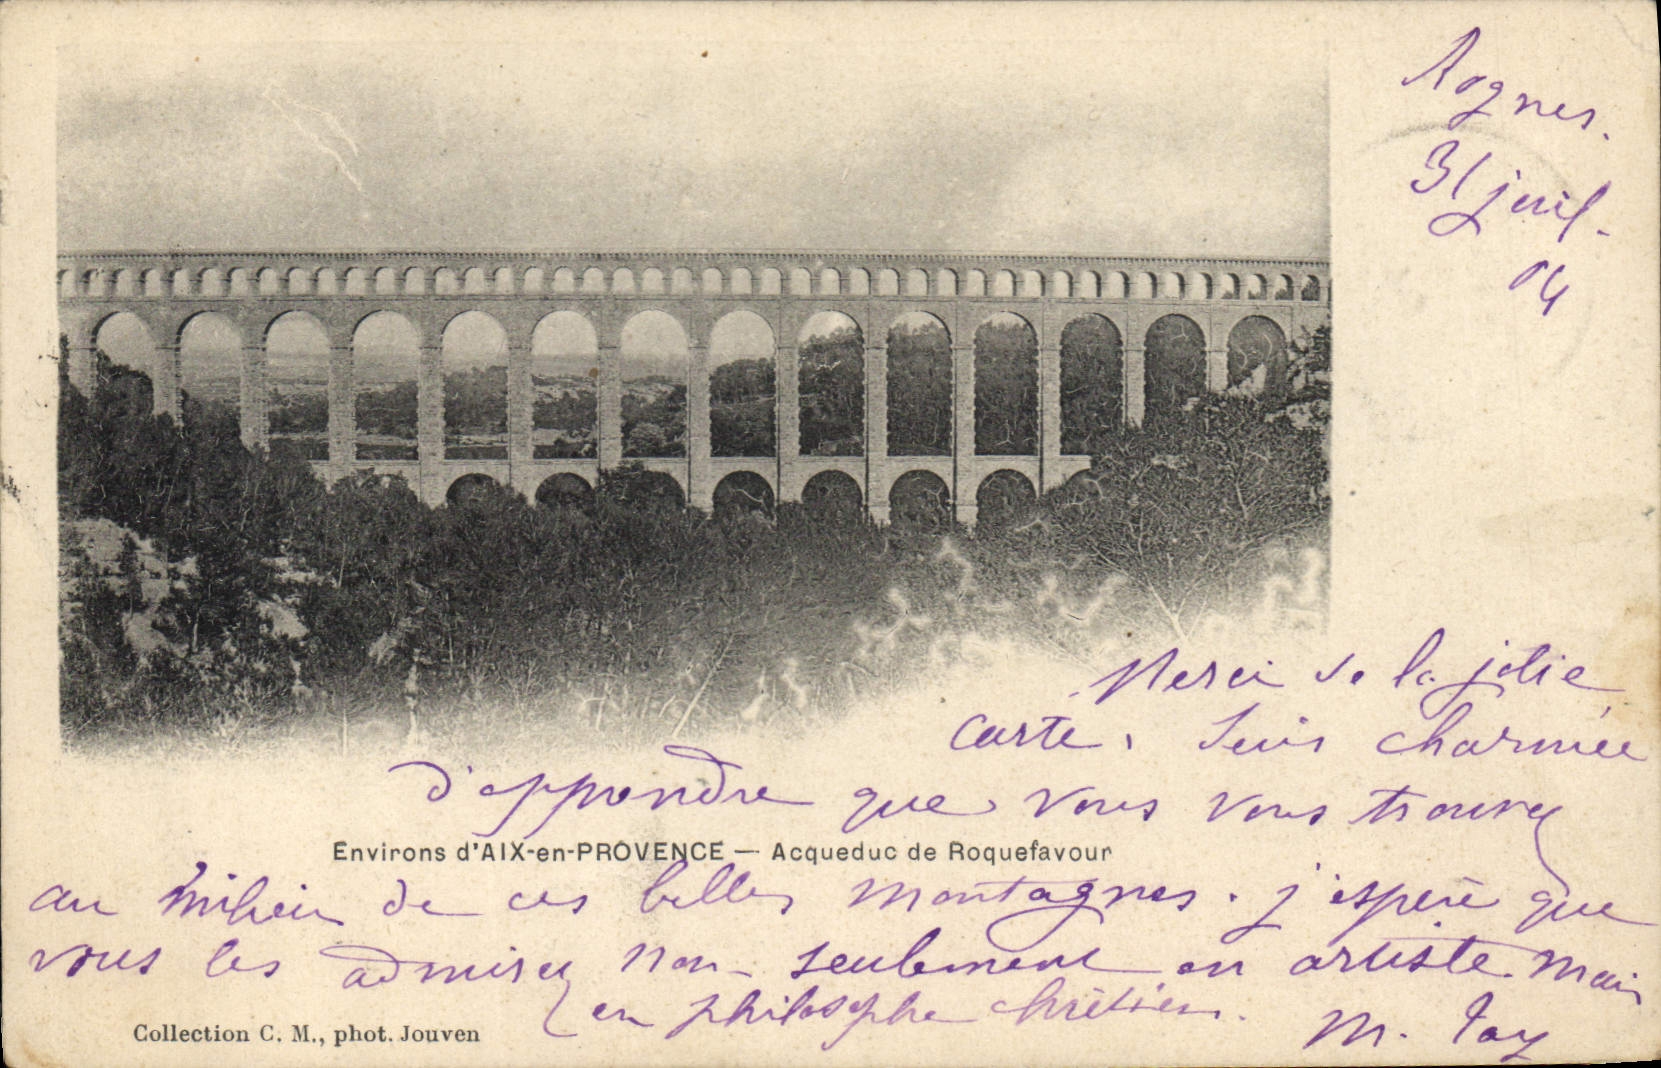 Rognes.
31 juil.
04
Merci de la jolie
carte. Suis charmée
d'apprendre que vous vous trouvez
Environs d'AIX-en-PROVENCE — Acqueduc de Roquefavour
au milieu de ces belles montagnes. j'espère que
vous les admirez non-seulement en artiste mais
en philosophe chrétien.
Collection C. M., phot. Jouven
M.